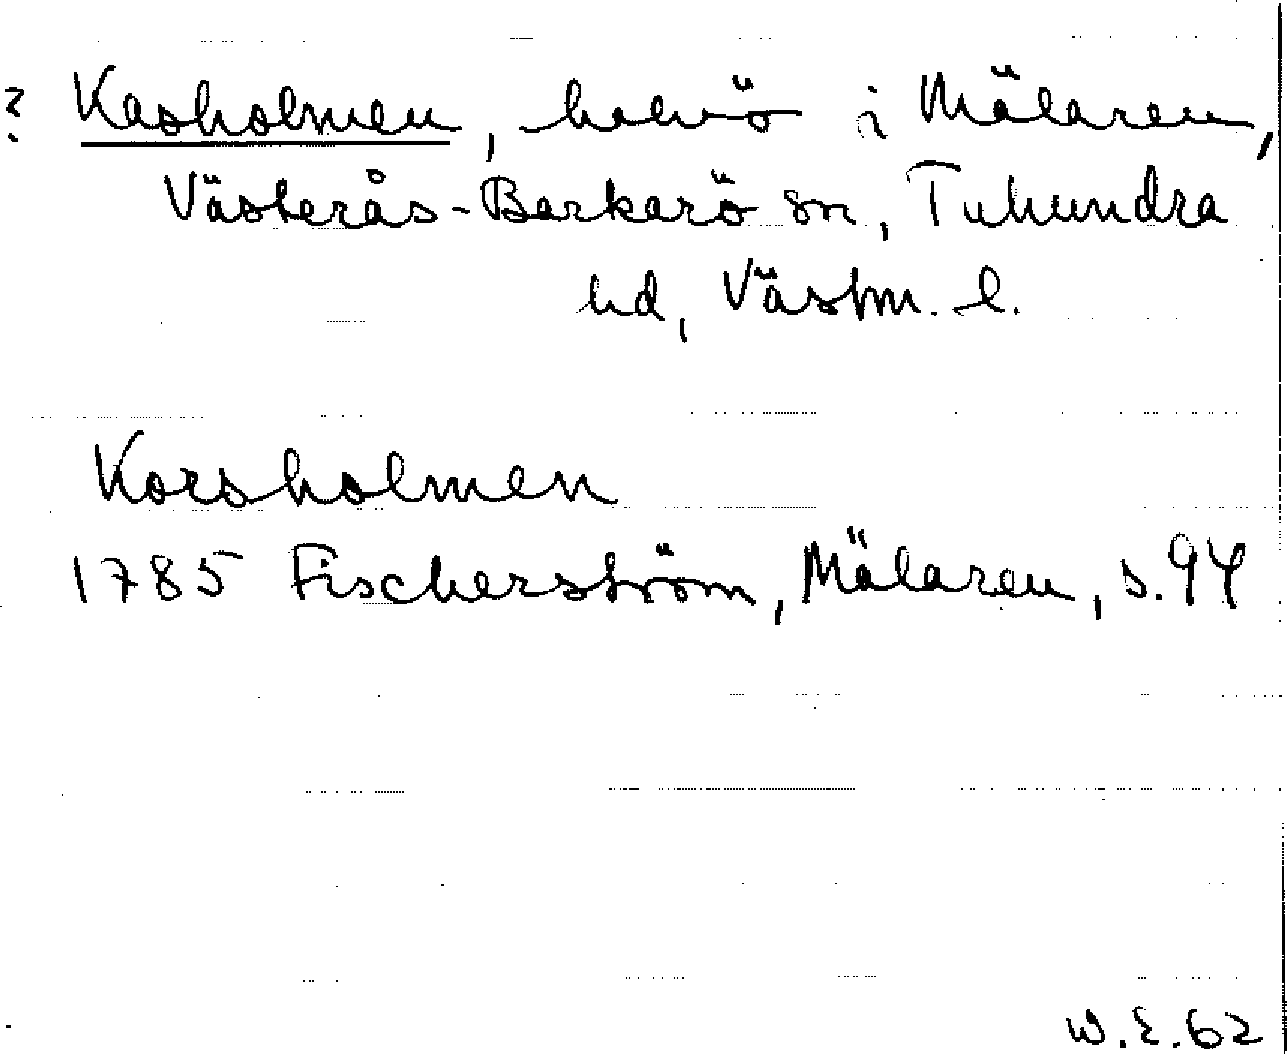 ? Kasholmen, halvö i Mälaren,
Västerås-Barkarö sn, Tuhundra
hd, Västm. l.
Korsholmen
1785 Fischerström, Mälaren, s. 94
W.E. 62